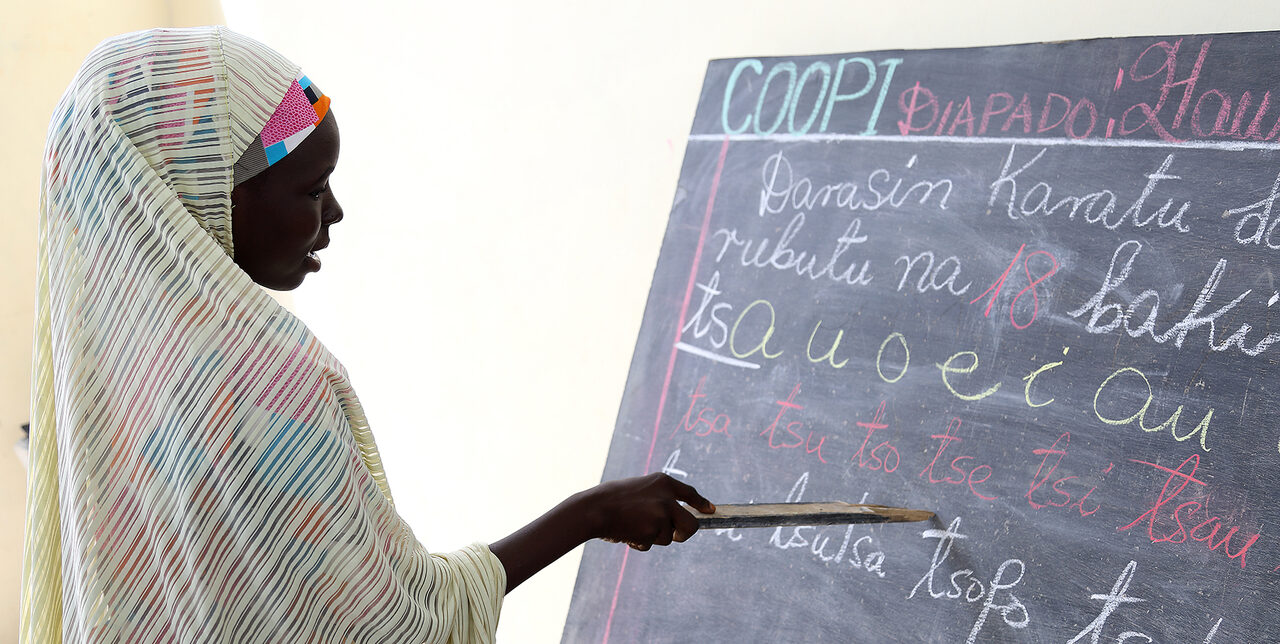 COOPI DIAPADO: Hau
Darasin Karatu da
rubutu na 18 baki
tsa u o e i au
tsa tsu tso tse tsi tsau
tsutsa tsofo